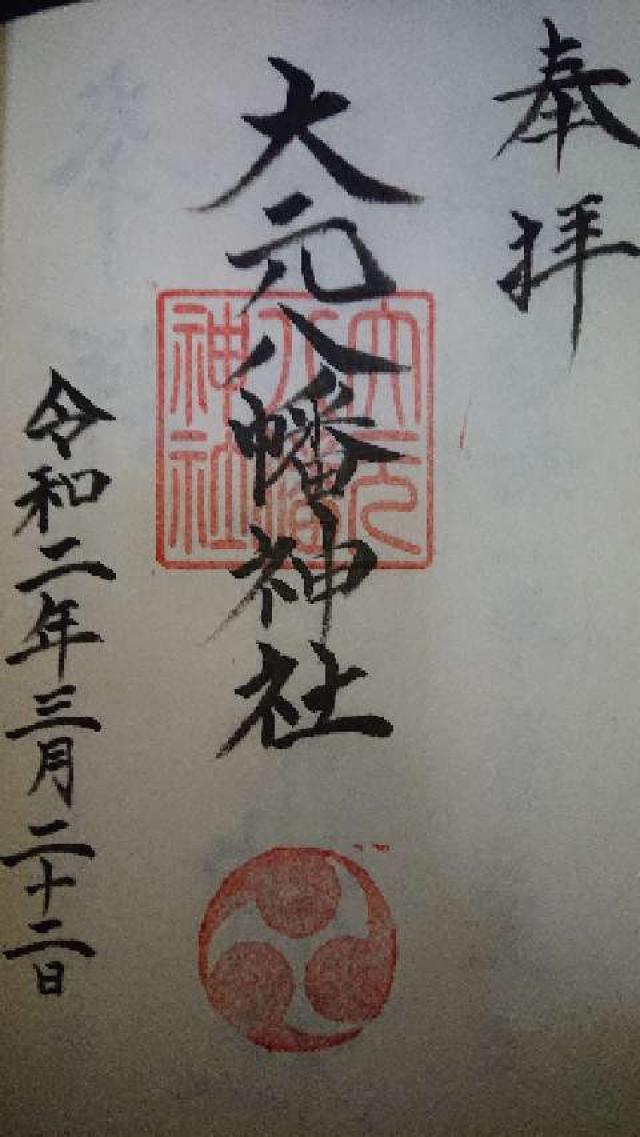 奉拝
大元八幡神社
大元
八幡
神社
令和二年三月二十二日